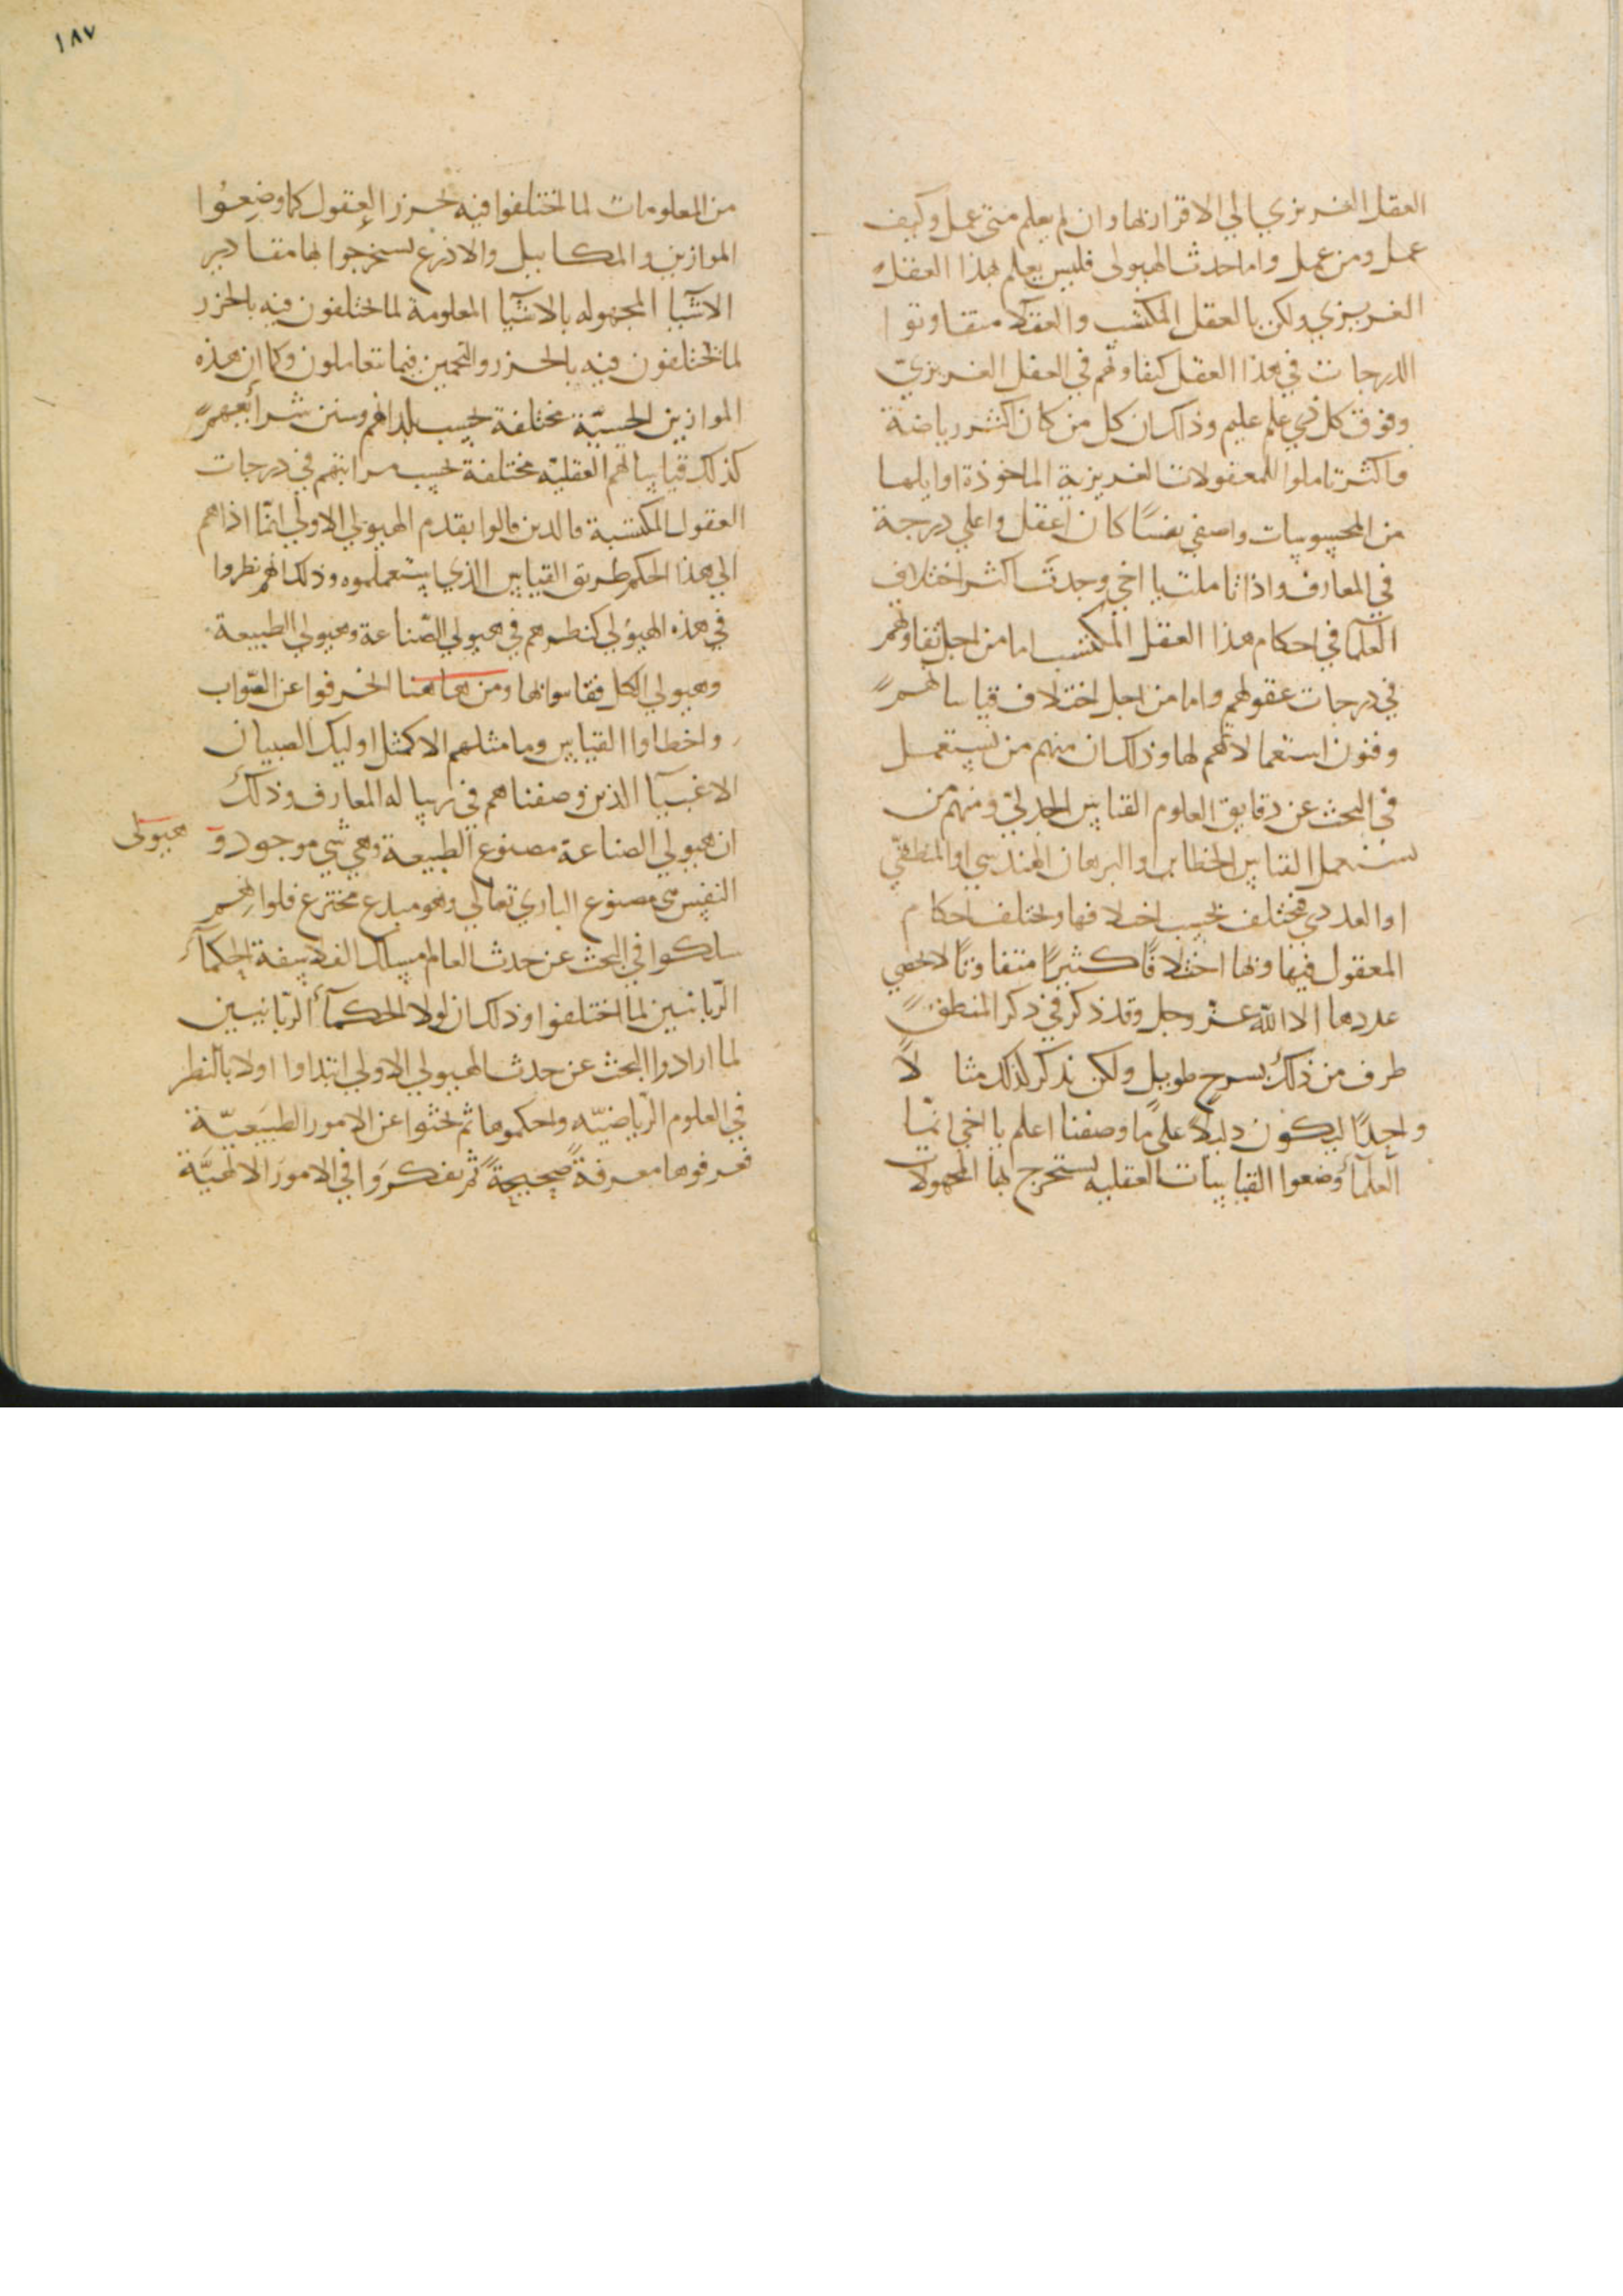 العقل الغريزي الي الاقرار بها وان لم يعلم متي عمل وكيف
عمل ومن عمل واما حدث الهيولى فليس يعلم بهذا العقل
الغريزي ولكن بالعقل المكتسب والعقلا متفاوتوا
الدرجات في هذا العقل كتفاوتهم في العقل الغريزي
وفوق كل ذي علم عليم وذاك ان كل من كان اكثر رياضة
واكثر تاملوا للمعقولات الغريزية الماخوذة اوايلها
من المحسوسات واصفي نفسًا كان اعقل واعلي درجة
في المعارف واذا تاملت يا اخي وجدت اكثر اختلاف
العلمآ في احكام هذا العقل المكتسب اما من اجل تفاوتهم
في درجات عقولهم واما من اجل اختلاف قياساتهم
وفنون استعمالاتهم لها وذلك ان منهم من يستعمل
في البحث عن دقايق العلوم القياس الجدلي ومنهم من
يستعمل القياس الخطابي او البرهان الهندسي او المنطقي
او العددي فتختلف بحسب اختلافها وتختلف احكام
العقول فيها وبها اختلافًا كثيرًا متفاوتًا لا تحصي
عددها الا الله عز وجل وقد ذكر في ذكر المنطق
طرف من ذلك بشرح طويل ولكن نذكر لذلك مثالًا
واحدًا ليكون دليلًا على ما وصفنا اعلم يا اخي انما
العلمآ وضعوا القياسات العقليه ليستخرج بها المجهولات
١٨٧
من المعلومات لما تختلفوا فيه بحرز العقول كما وضعوا
الموازين والمكاييل والاذرع ليستخرجوا بها مقادير
الاشيا المجهوله بالاشيا المعلومة لما تختلفون فيه بالحزر
لما تختلفون فيه بالحزر والتخمين فيما يتعاملون وكما ان هذه
الموازين الحسيّة مختلفة بحسب بلدانهم وسنن شرائعهم
كذلك قياساتهم العقليّه مختلفة بحسب مراتبهم في درجات
العقول المكتسبة فالذين قالوا بقدم الهيولي الاولي انما اداهم
الي هذا الحكم طريق القياس الذي يستعملوه وذلك انهم نظروا
في هذه الهيولي كنظرهم في هيولي الصّناعة وهيولي الطبيعة
وهيولي الكل فقاسوا بها ومن هاهنا انحرفوا عن الصّواب
واخطاوا القياس وما مثلهم الا كمثل اوليك الصبيان
الاغبيآ الذين وصفناهم في رسالة المعارف وذلك
ان هيولي الصناعة مصنوع الطبيعة وهي شي موجود و هيولى
النفس هي مصنوع الباري تعالي وهو مبدع مخترع فلو انهم
سلكوا في البحث عن حدث العالم مسلك الفلاسفة الحكمآ
الرّبانيين لما اختلفوا وذلك ان لولا الحكمآ الرّبانيين
لما ارادوا البحث عن حدث الهيولي الاولي ابتداوا اولا بالنظر
في العلوم الرّياضيّه واحكموها ثم بحثوا عن الامور الطبيعيّة
فعرفوها معرفةً صحيحةً ثم تفكروا في الامور الالهيّة